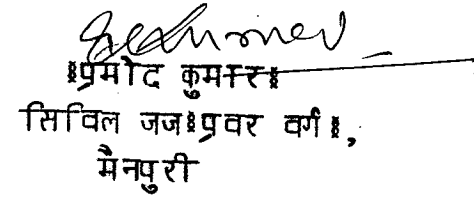 (प्रमोद कुमार)
सिविल जज(प्रवर वर्ग),
मैनपुरी